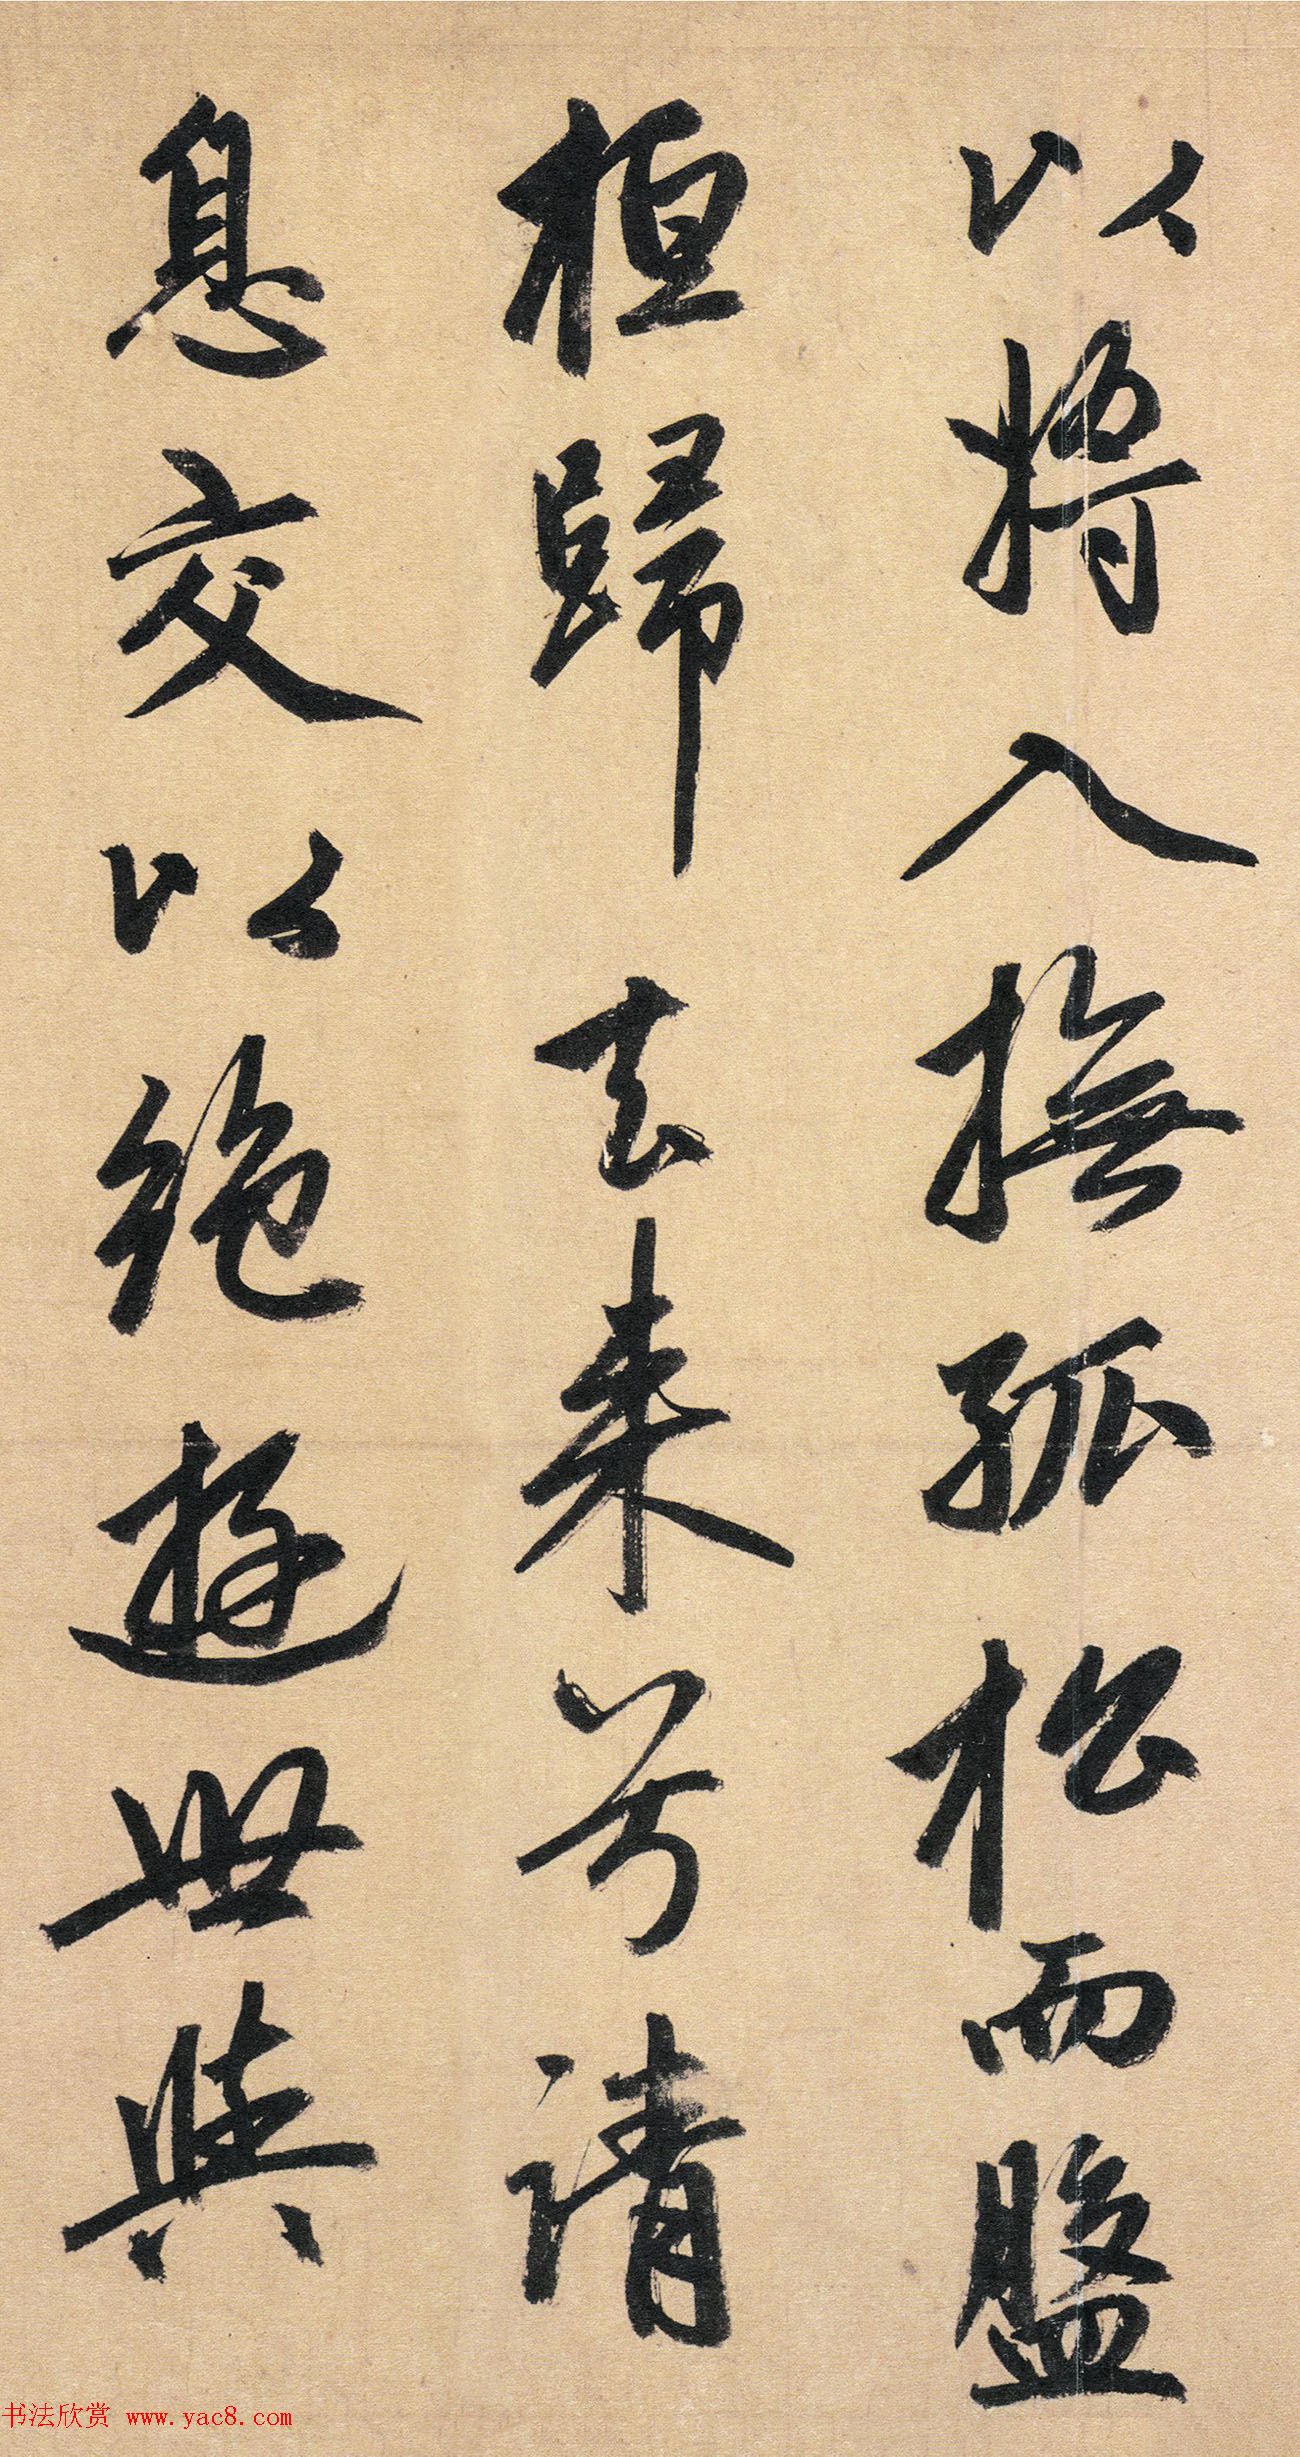 以将入撫孤松而盤
桓歸去来兮請
息交以絶遊世與
书法欣赏 www.yac8.com